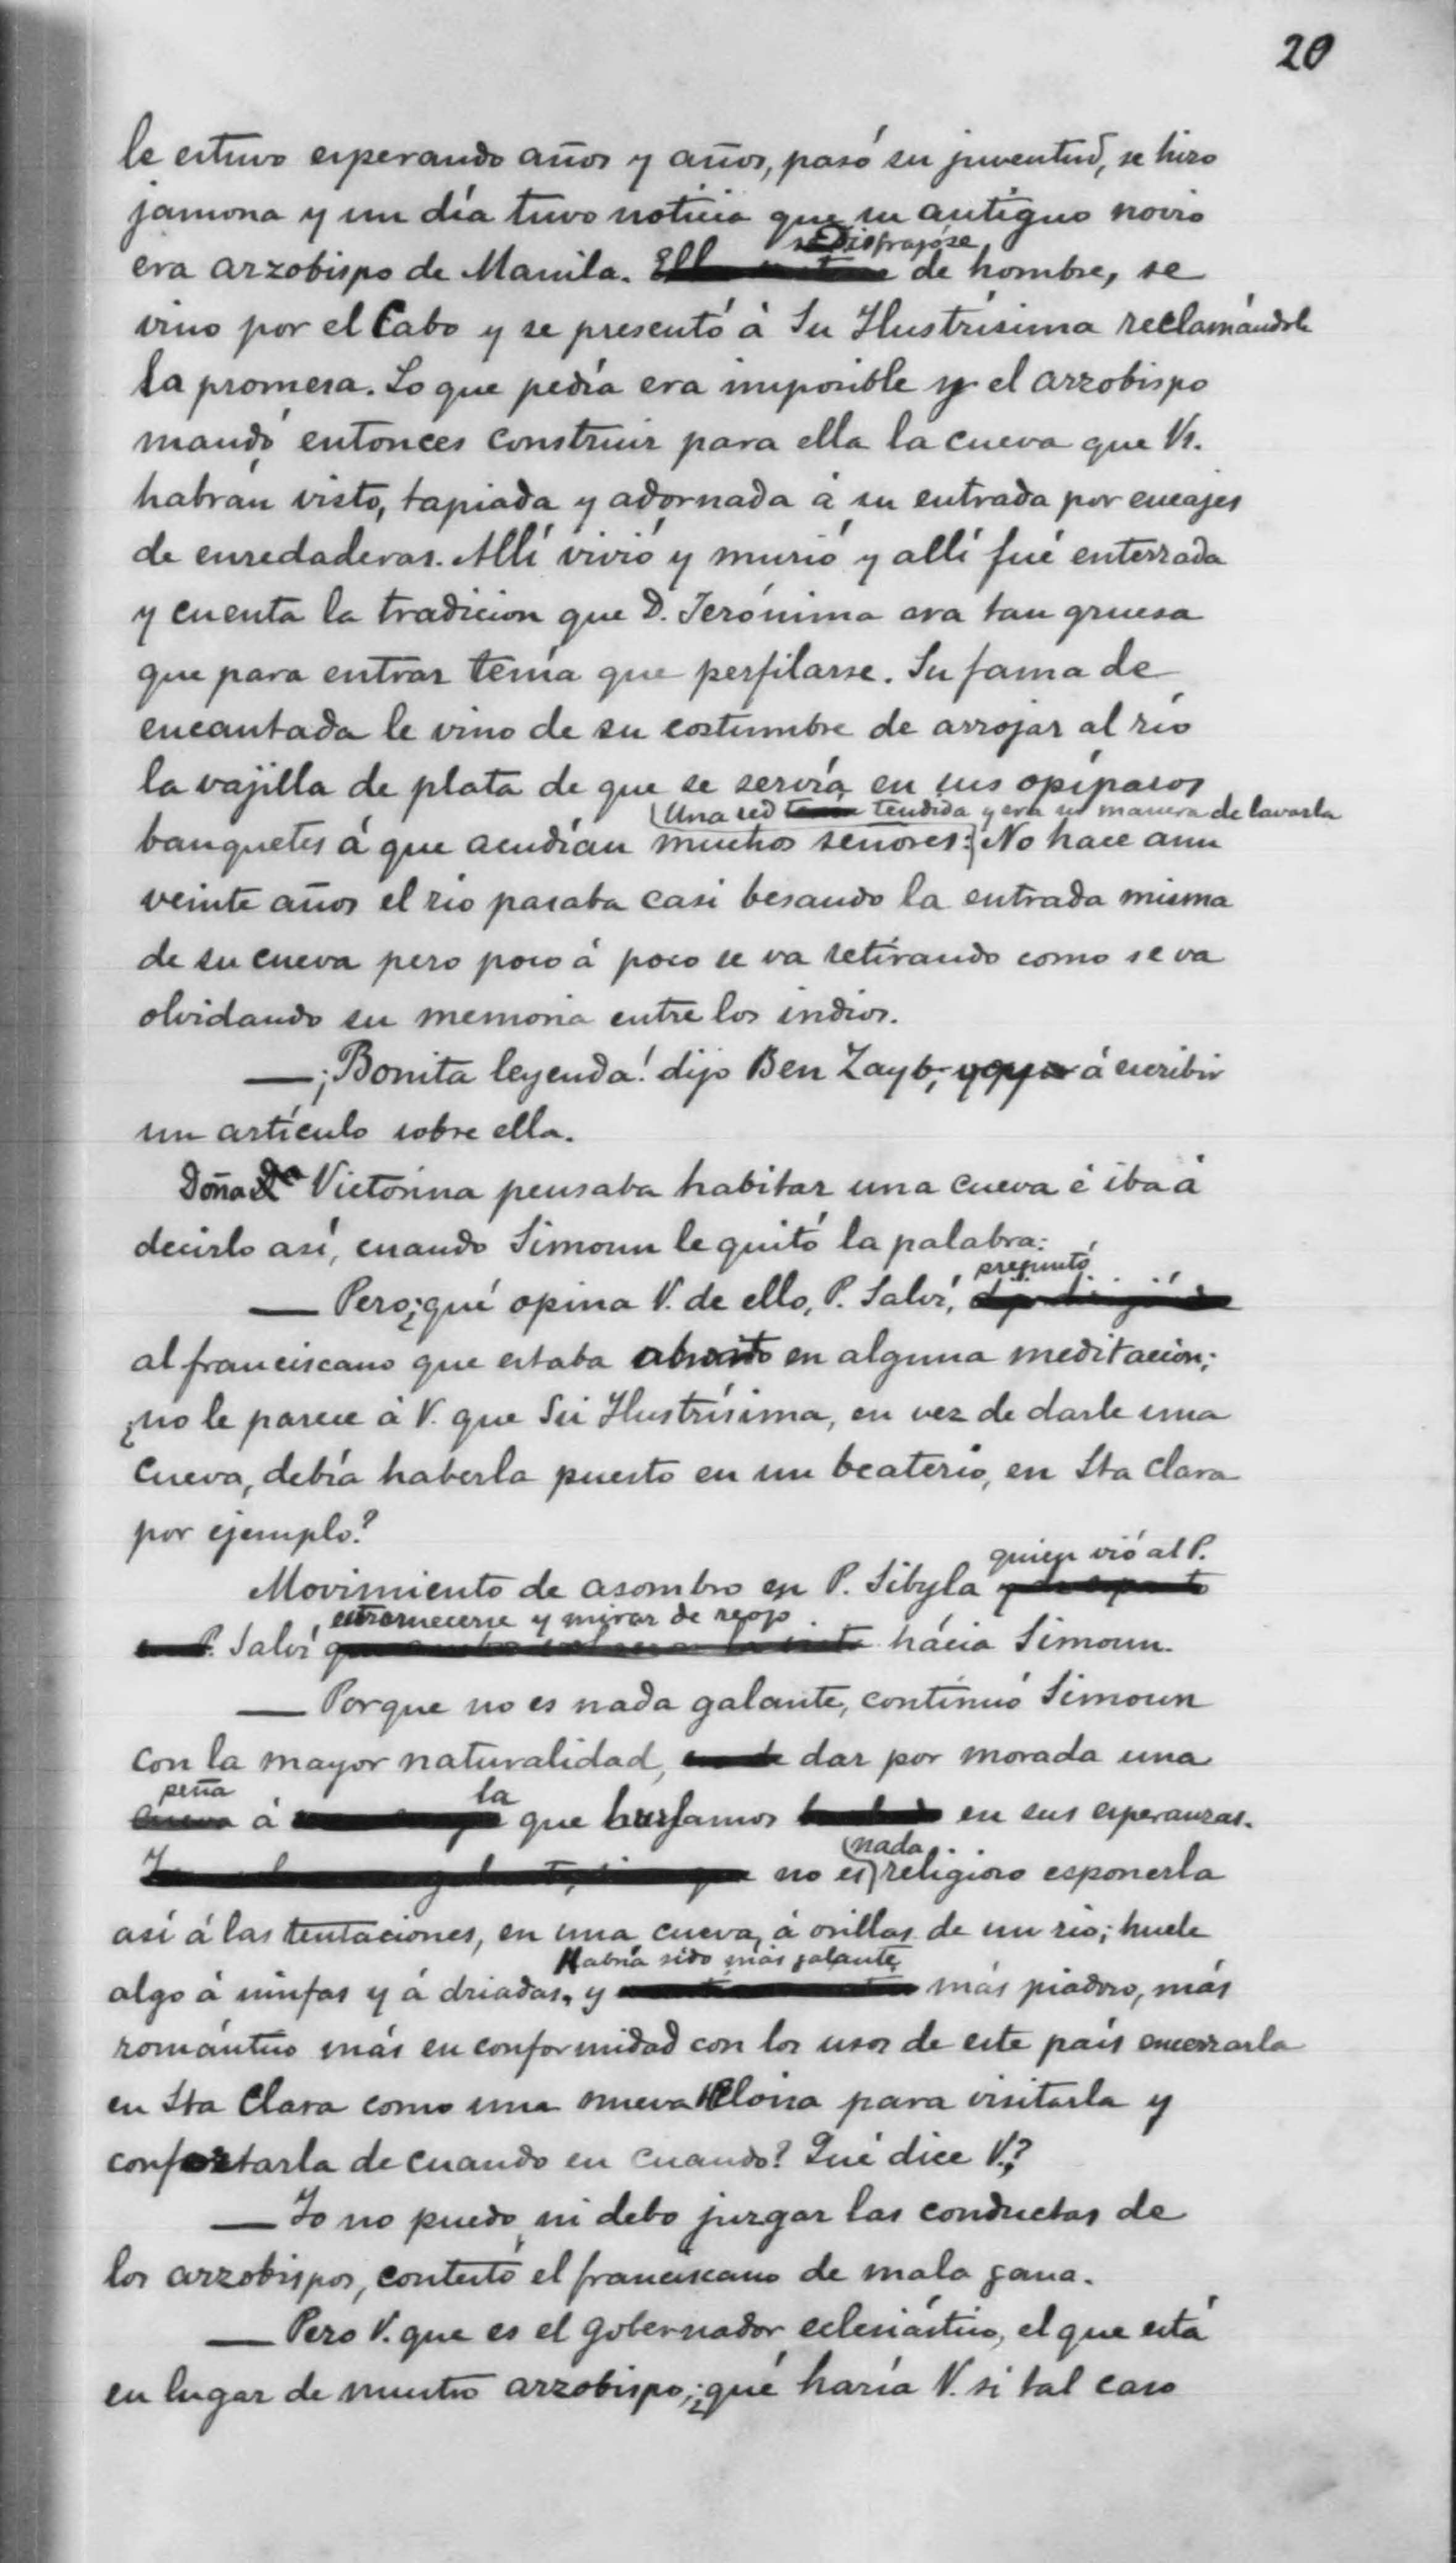 20
le estuvo esperando años y años, pasó su juventud, se hizo
jamona y un día tuvo noticia que su antiguo novio
Disfrazóse
era arzobispo de Manila. Ell de hombre, se
vino por el Cabo y se presentó á Su Ilustrísima reclamándole
la promesa. Lo que pedía era imposible y el arzobispo
mandó entonces construir para ella la cueva que Vs.
habrán visto, tapiada y adornada á su entrada por encajes
de enredaderas. Allí vivió y murió y allí fué enterrada
y cuenta la tradicion que D. Jerónima era tan gruesa
que para entrar tenía que perfilarse. Su fama de
encantada le vino de su costumbre de arrojar al río
la vajilla de plata de que se servía en sus opíparos
Una red tendida y era su manera de lavarla
banquetes á que acudían muchos señores. No hace aun
veinte años el río pasaba casi besando la entrada misma
de su cueva pero poco á poco se va retirando como se va
olvidando su memoria entre los indios.
— ¡Bonita leyenda! dijo Ben Zayb, á escribir
un artículo sobre ella.
Doña Dª Victorina pensaba habitar una cueva é iba á
decirlo así, cuando Simoun le quitó la palabra:
preguntó
— Pero ¿qué opina V. de ello, P. Salví,
al franciscano que estaba absorto en alguna meditación;
¿no le parece á V. que Su Ilustrísima, en vez de darle una
cueva, debía haberla puesto en un beaterio, en Sta Clara
por ejemplo?
quien vió al P.
Movimiento de asombro en P. Sibyla
estremecerse y mirar de reojo
P. Salví hácia Simoun.
— Porque no es nada galante, continuó Simoun
con la mayor naturalidad, dar por morada una
peña la
cueva á que burlamos en sus esperanzas.
nada
no es religioso esponerla
así á las tentaciones, en una cueva, á orillas de un río; huele
Habría sido más galante,
algo á ninfas y á driadas. y más piadoso, más
romántico más en conformidad con los usos de este país encerrarla
en Sta Clara como una nueva Eloisa para visitarla y
confortarla de cuando en cuando? Qué dice V.?
— Yo no puedo ni debo juzgar las conductas de
los arzobispos, contestó el franciscano de mala gana.
— Pero V. que es el gobernador eclesiástico, el que está
en lugar de nuestro arzobispo, ¿qué haría V. si tal caso